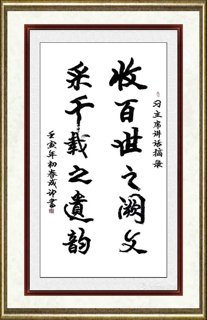 习主席讲话摘录
收百世之阙文
采千载之遗韵
壬寅年初春成沛书